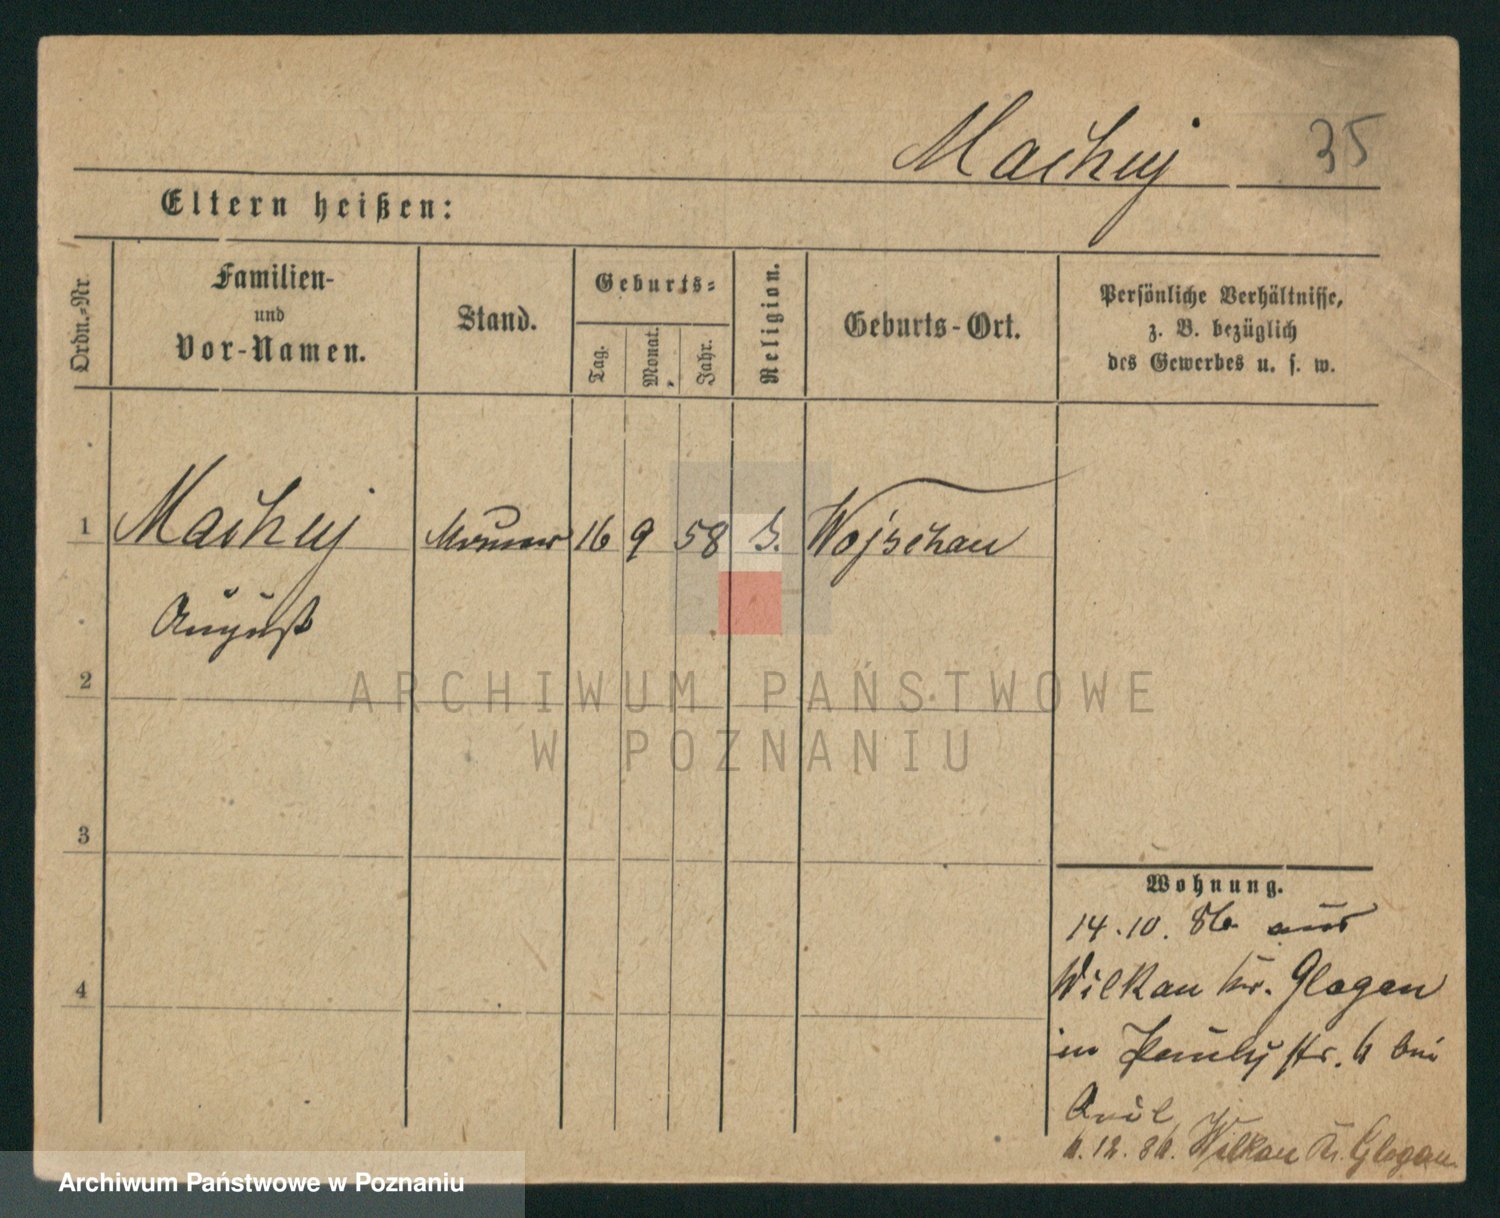 Machuj 35
Eltern heißen:
Ordn.-Nr
Familien-
und
Vor-Namen.
Stand.
Geburts-
Tag.
Monat.
Jahr.
Religion.
Geburts-Ort.
Persönliche Verhältnisse,
z. B. bezüglich
des Gewerbes u. s. w.
1 Machuj 16 9 58 Wojschau
August
2
ARCHIWUM PAŃSTWOWE
W POZNANIU
3
4
Wohnung.
14.10. 86 aus
Wilkau Kr. Glogau
in str. bei
12. Wilkau Kr. Glogau
Archiwum Państwowe w Poznaniu